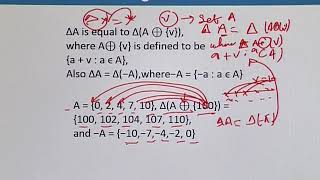 V → set A
ΔA is equal to Δ(A ⊕ {v}),
where A⊕ {v} is defined to be
{a + v : a ϵ A},
Also ΔA = Δ(−A),where−A = {-a : a ϵ A}
A = {0, 2, 4, 7, 10}, Δ(A ⊕ {100}) =
{100, 102, 104, 107, 110},
and −A = {−10,−7,−4,−2, 0}
Δ A = Δ (A⊕V)
where A⊕(V)
a + v : a ϵ A}
ΔA = Δ(-A)